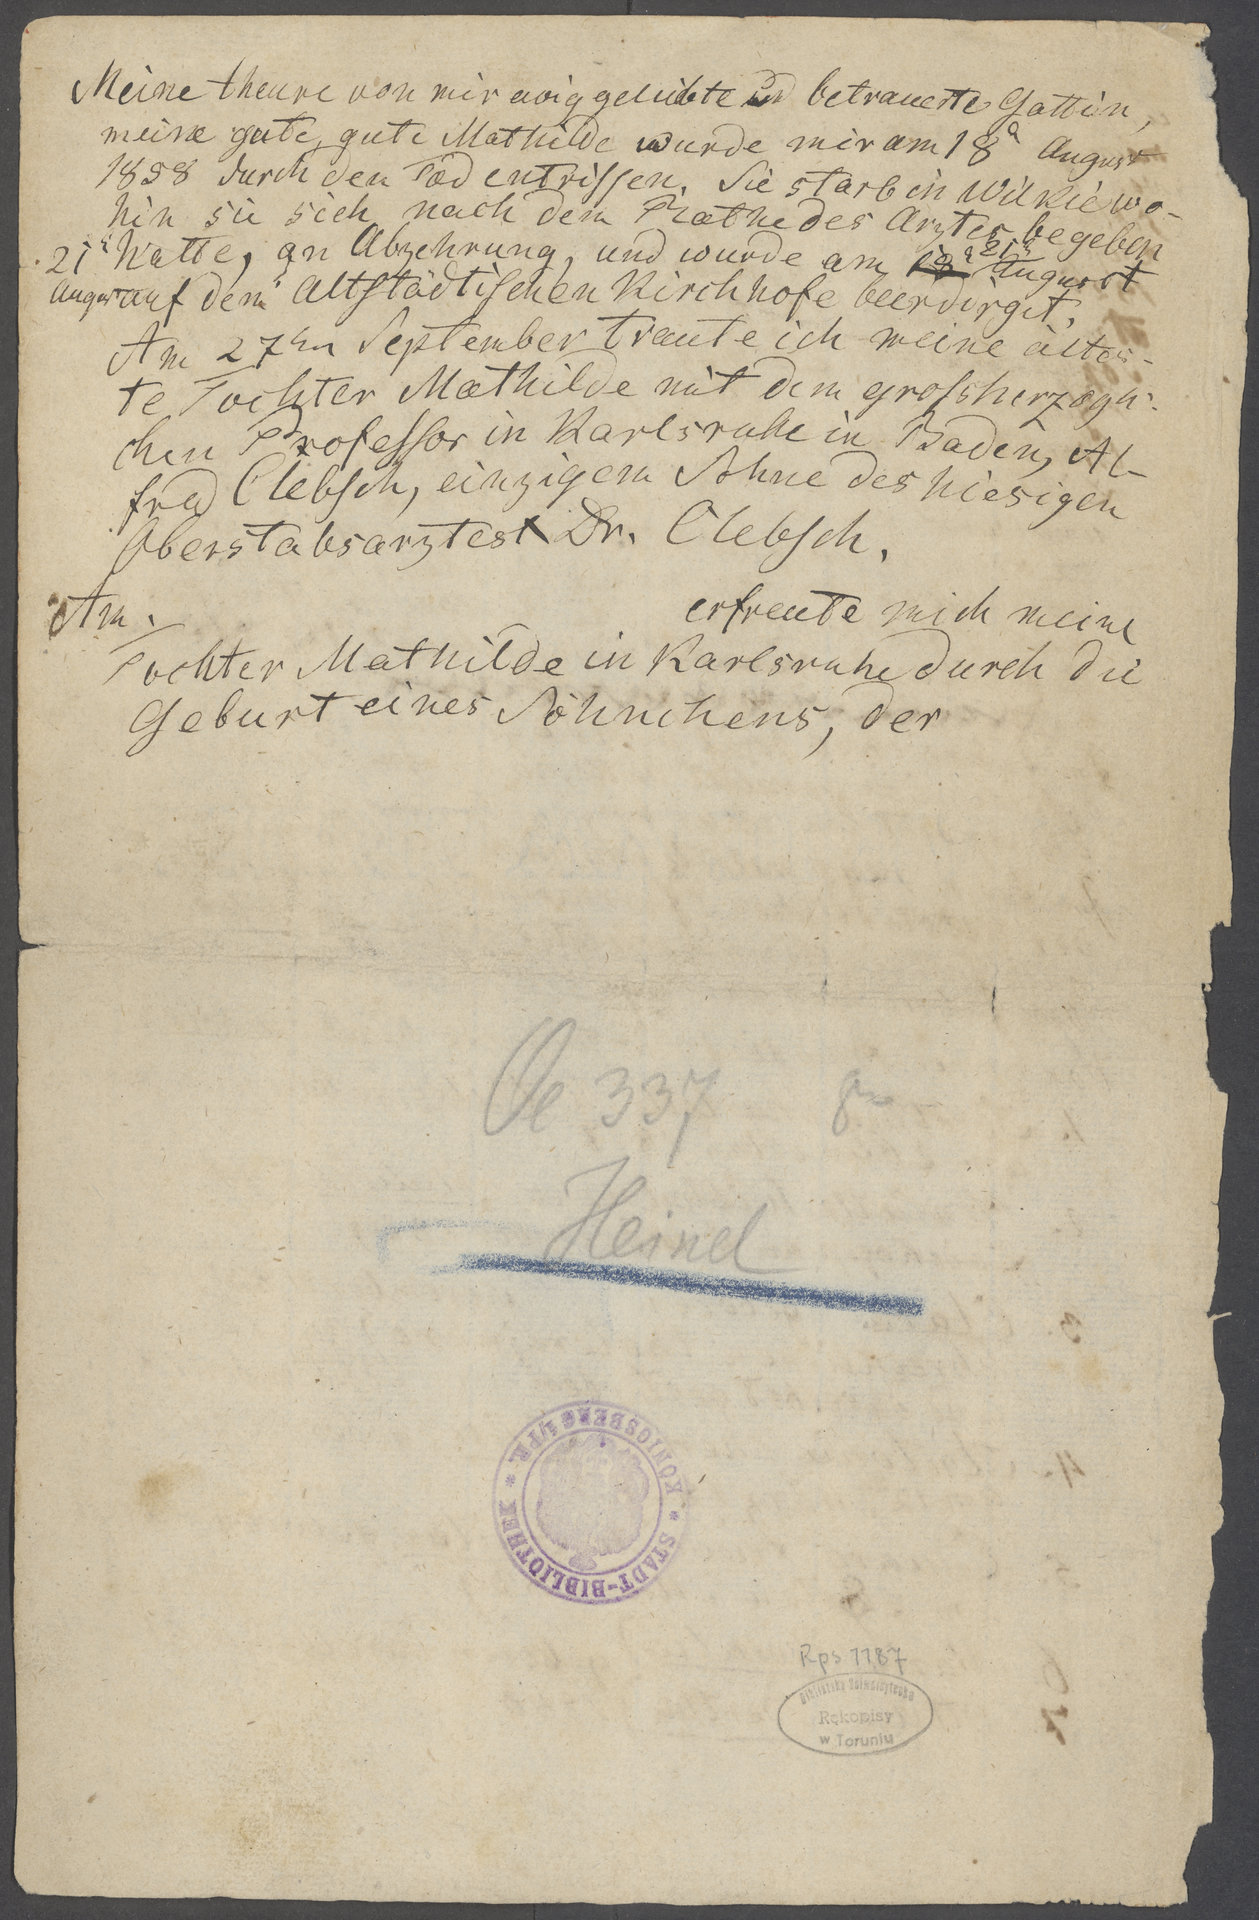 Meine theure von mir ewig geliebte und betrauerte Gattin,
meine gute, gute Mathilde wurde mir am 18n August
1858 durch den Tod entrissen. Sie starb in Wilkie wo-
hin sie sich nach dem Rathe des Arztes begeben
hatte, an Abzehrung, und wurde am 18n 21n August
21n August auf dem Altstädtischen Kirchhofe beerdigt.
Am 27ten September traute ich meine ältes-
te Tochter Mathilde mit dem grossherzogli-
chen Professor in Karlsruhe in Baden, Al-
fred Clebsch, einzigem Sohne des hiesigen
Oberstabsarztes Dr. Clebsch.
Am erfreute mich meine
Tochter Mathilde in Karlsruhe durch die
Geburt eines Söhnchens, der
Oe 337 8o
Heinel
STADT-BIBLIOTHEK * KÖNIGSBERG i/PR. *
Rps 1187
Biblioteka Uniwersytecka
Rękopisy
w Toruniu